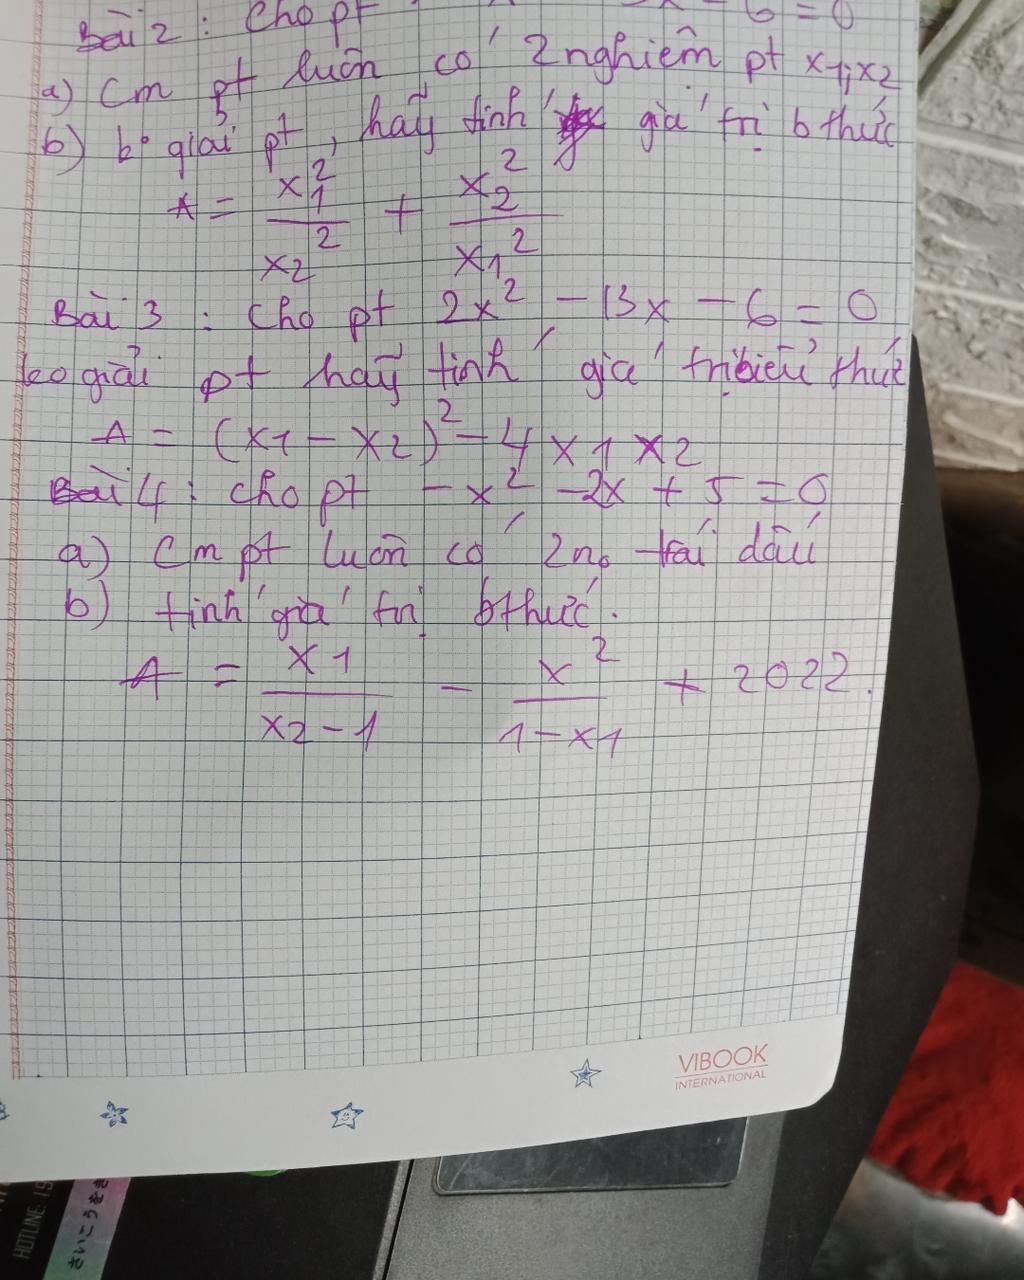 Bài 2 : Cho pt - 6 = 0
a) Cm pt luôn có 2 nghiêm pt x1,x2
b) ko giải pt, hãy tính giá trị b thức
A = x1² / x2² + x2² / x1²
Bài 3 : Cho pt 2x² - 13x - 6 = 0
ko giải pt hãy tính giá trị biểu thức
A = (x1 - x2)² - 4 x1 x2
Bài 4 : cho pt - x² - 2x + 5 = 0
a) Cm pt luôn có 2 no trái dấu
b) tính giá trị bthức.
A = x1 / x2 - 1 - x² / 1 - x1 + 2022.
VIBOOK
INTERNATIONAL
HOTLINE: 19
さいこうをき